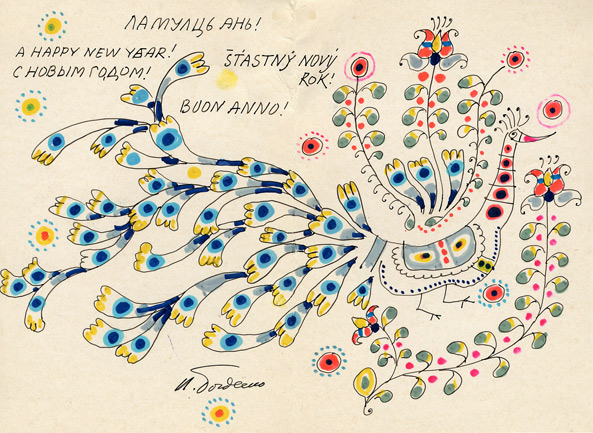 ЛА МУЛЦЬ АНЬ!
A HAPPY NEW YEAR!
С НОВЫМ ГОДОМ!
ŠŤASTNÝ NOVÝ
ROK!
BUON ANNO!
И. Богдеско